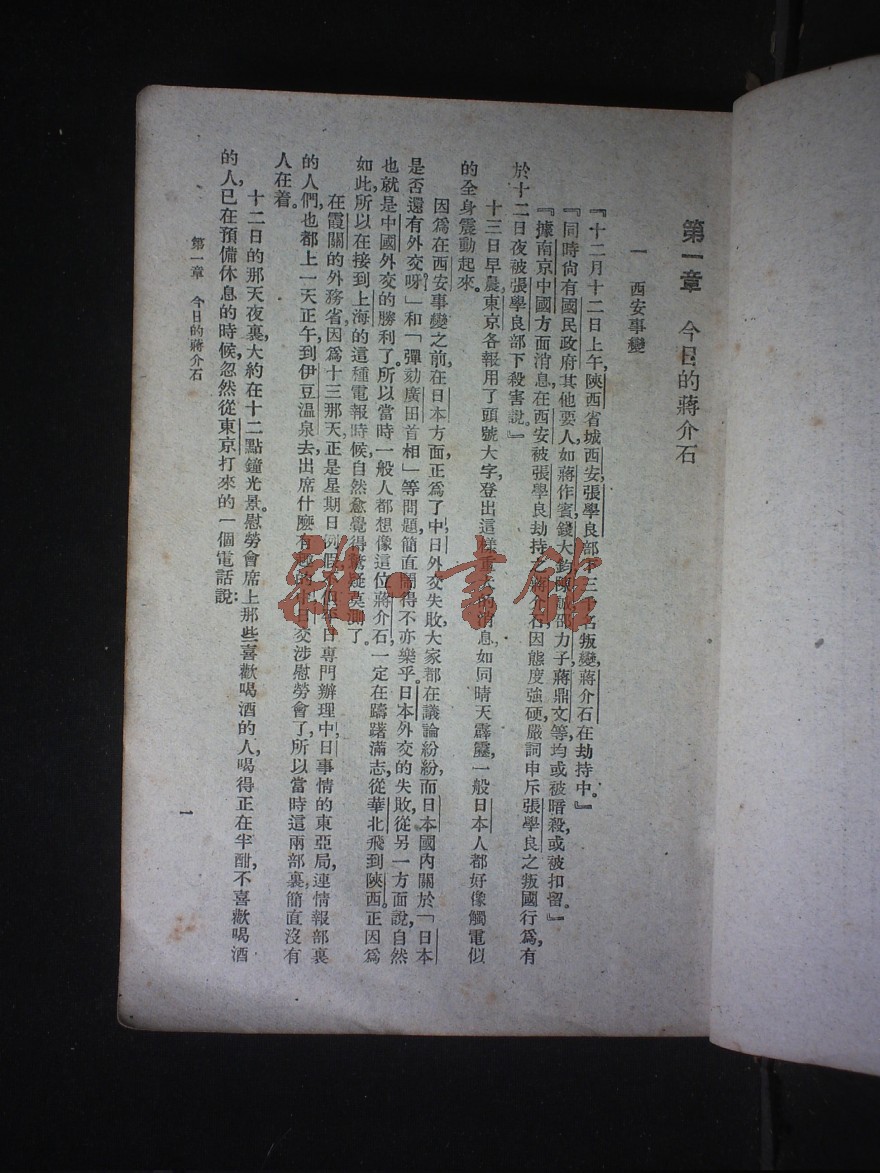 第一章　今日的蔣介石
一　西安事變
『十二月十二日上午,陝西省城西安,張學良部下三千名叛變,蔣介石在劫持中。』
『同時尙有國民政府其他要人,如蔣作賓,錢大鈞,陳誠,邵力子,蔣鼎文等,均或被暗殺,或被扣留。』
『據南京中國方面消息,在西安被張學良劫持之蔣介石,因態度強硬,嚴詞申斥張學良之叛國行爲,有
於十二日夜被張學良部下殺害說。』
十三日早晨,東京各報用了頭號大字,登出這樣重大的消息,如同晴天霹靂,一般日本人都好像觸電似
的全身震動起來。
因爲在西安事變之前,在日本方面,正爲了中,日外交失敗,大家都在議論紛紛,而日本國內關於「日本
是否還有外交呀」和「彈劾廣田首相」等問題,簡直鬧得不亦樂乎。日本外交的失敗,從另一方面說,自然
也就是中國外交的勝利了。所以當時一般人都想像這位蔣介石,一定在躊躇滿志,從華北飛到陝西。正因爲
如此,所以在接到上海的這種電報時候,自然愈覺得驚疑莫測了。
在霞關的外務省,因爲十三那天,正是星期日例假,不但平日專門辦理中,日事情的東亞局,連情報部裏
的人們,也都上一天正午,到伊豆溫泉去出席什麽有趣的中,日交涉慰勞會了,所以當時這兩部裏,簡直沒有
人在着。
十二日的那天夜裏,大約在十二點鐘光景。慰勞會席上那些喜歡喝酒的人,喝得正在半酣,不喜歡喝酒
的人,已在預備休息的時候,忽然從東京打來的一個電話說:
第一章　今日的蔣介石
一
雜·書館